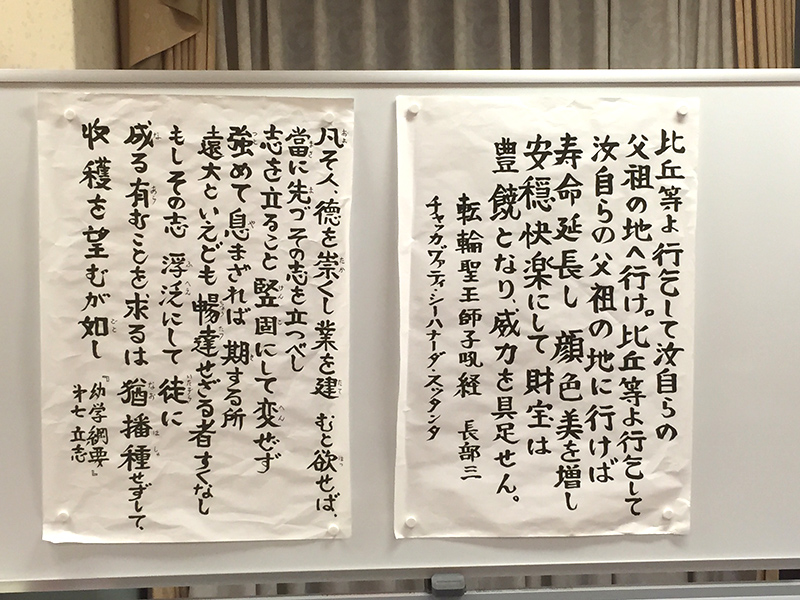 比丘等よ行乞して汝自らの
父祖の地へ行け。比丘等よ行乞して
汝自らの父祖の地に行けば
寿命延長し 顔色美を増し
安穏快楽にして財宝は
豊饒となり、威力を具足せん。
転輪聖王師子吼経 長部三
チャッカヴァティ・シーハナーダ・スッタンタ
凡そ人、徳を崇くし業を建むと欲せば、
當に先づその志を立つべし
志を立ること竪固にして変ぜず
強めて息まざれば期する所
遠大といえども暢達せざる者すくなし
もしその志 浮泛にして徒に
成る有むことを求るは猶播種せずして、
収穫を望むが如し
『幼学綱要』
第七 立志